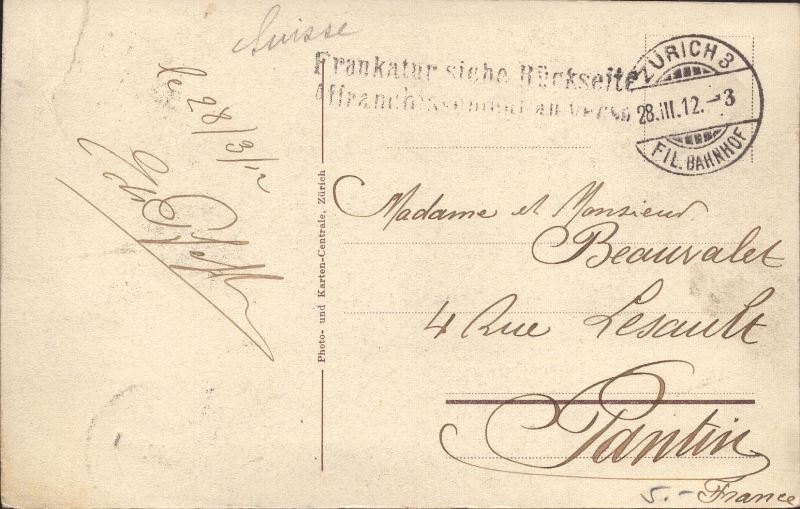 Suisse
Frankatur siehe Rückseite
Affranchissement au verso
ZÜRICH 3
28.III.12.-3
FIL. BAHNHOF
le 28/3/12
Photo- und Karten-Centrale, Zürich
Madame et Monsieur
Beauvalet
4 Rue Lesault
Pantin
France
5.-